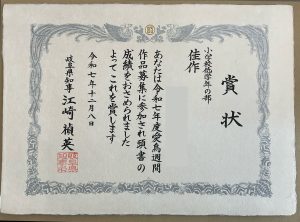 賞状
小学校低学年の部
佳作
あなたは令和七年度愛鳥週間
作品募集に参加され頭書の
成績をおさめられました
よってこれを賞します
令和七年十二月八日
岐阜県知事 江崎禎英